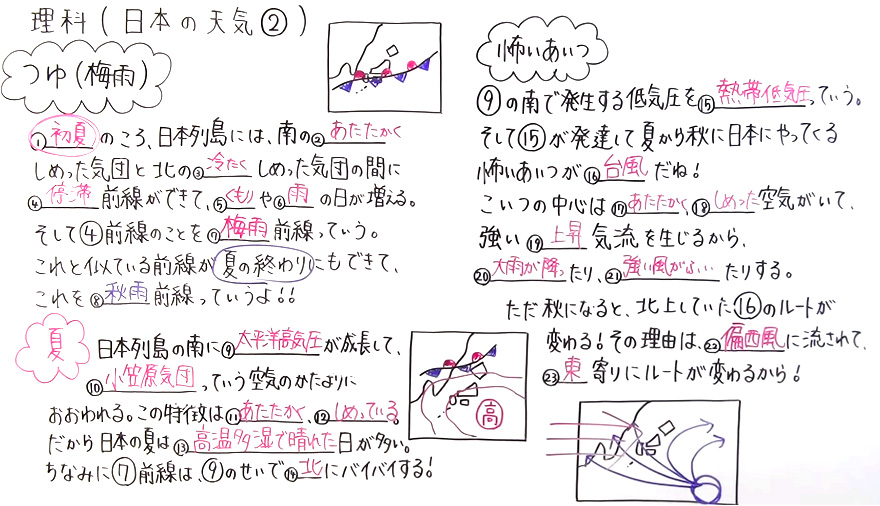 理科(日本の天気②)
つゆ(梅雨)
①初夏のころ、日本列島には、南の②あたたかく
しめった気団と北の③冷たくしめった気団の間に
④停滞前線ができて、⑤くもりや⑥雨の日が増える。
そして④前線のことを⑦梅雨前線っていう。
これと似ている前線が夏の終わりにもできて、
これを⑧秋雨前線っていうよ!!
夏
日本列島の南に⑨太平洋高気圧が成長して、
⑩小笠原気団っていう空気のかたよりに
おおわれる。この特徴は⑪あたたかく、⑫しめっている。
だから日本の夏は⑬高温多湿で晴れた日が多い。
ちなみに⑦前線は、⑨のせいで⑭北にバイバイする!
高
怖いあいつ
⑨の南で発生する低気圧を⑮熱帯低気圧っていう。
そして⑮が発達して夏から秋に日本にやってくる
怖いあいつが⑯台風だね!
こいつの中心は⑰あたたかく、⑱しめった空気がいて、
強い⑲上昇気流を生じるから、
⑳大雨が降ったり、㉑強い風がふいたりする。
ただ秋になると、北上していた⑯のルートが
変わる!その理由は、㉒偏西風に流されて、
㉓東寄りにルートが変わるから!